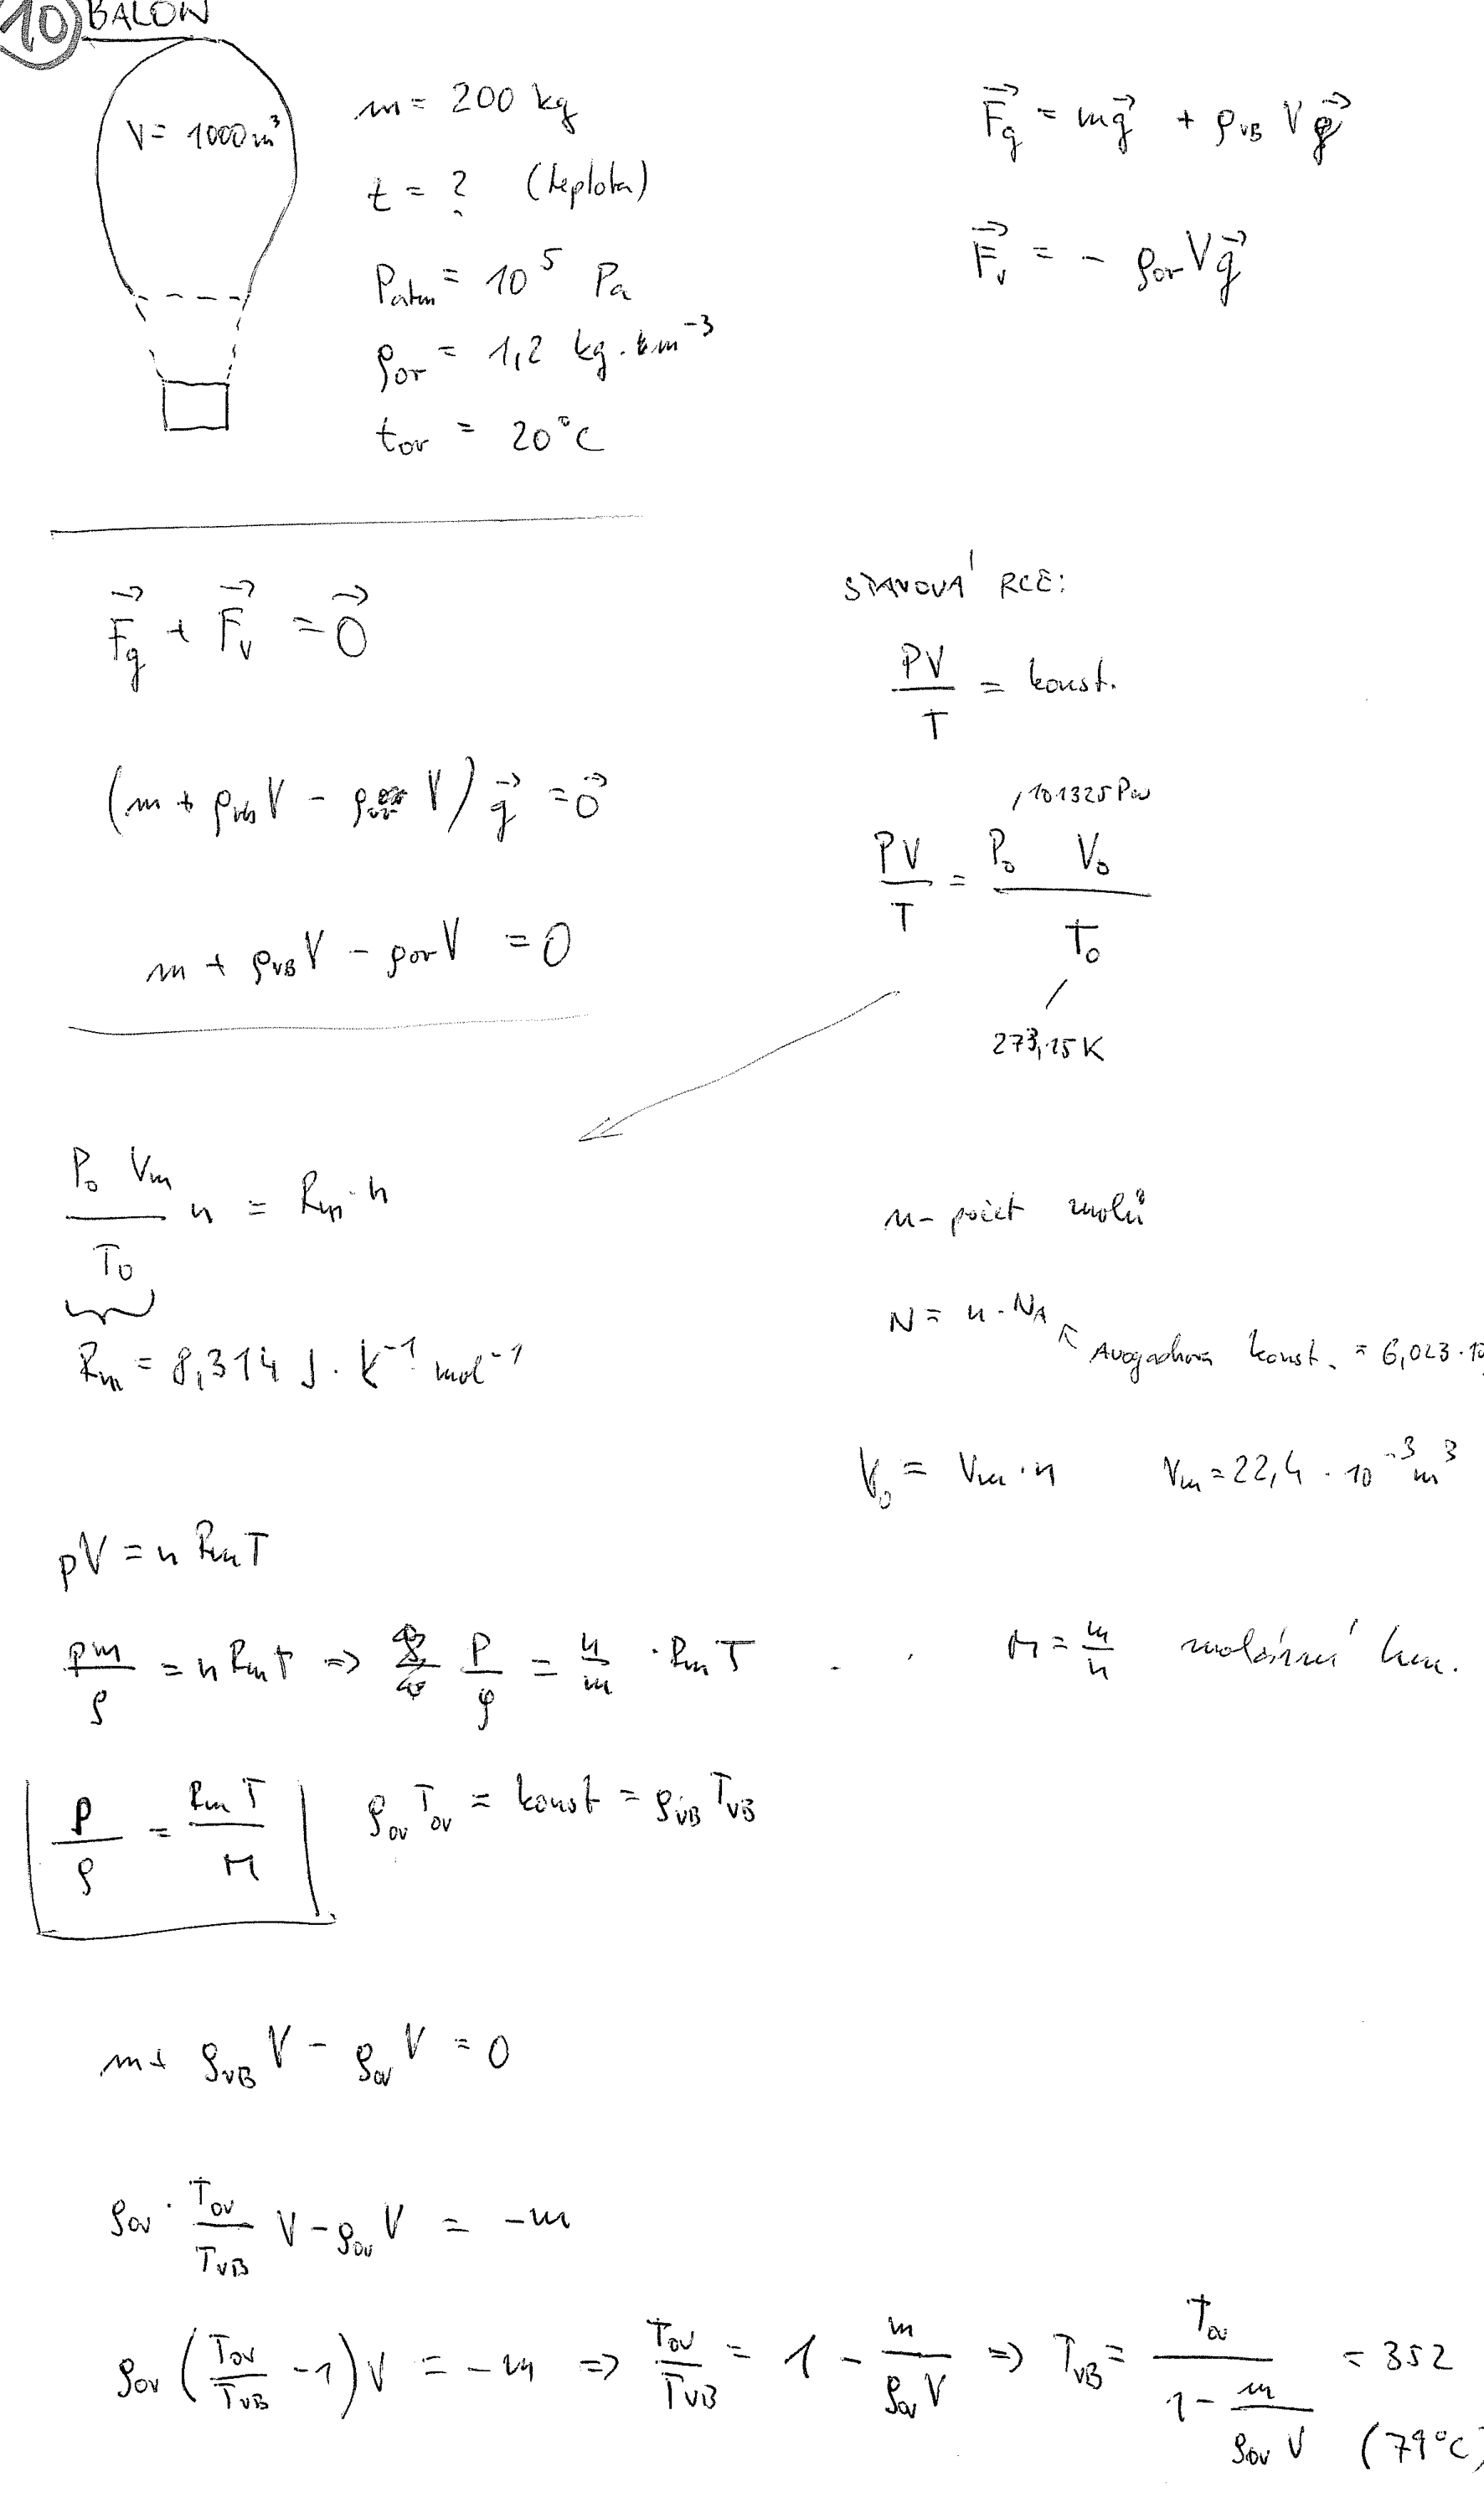 10 BALÓN
V = 1000 m³
m = 200 kg
t = ? (teplota)
Patm = 10⁵ Pa
ρov = 1,2 kg · m⁻³
tov = 20°C
F⃗g = mg⃗ + ρVB V g⃗
F⃗v = - ρov V g⃗
F⃗g + F⃗v = 0⃗
(m + ρVB V - ρov V) g⃗ = 0⃗
m + ρVB V - ρov V = 0
STAVOVÁ RCE:
PV/T = konst.
101325 Pa
PV/T = P₀ V₀/T₀
273,15 K
P₀ Vm/T₀ n = Rm · n
Rm = 8,314 J · K⁻¹ mol⁻¹
n - počet molů
N = n · NA
Avogadrova konst. = 6,023 · 10
V₀ = Vm · n Vm = 22,4 · 10⁻³ m³
pV = n Rm T
pm/ρ = n Rm T => p/ρ = n/m · Rm T
M = m/n molární hm.
p/ρ = Rm T/M
ρov Tov = konst = ρVB TVB
m + ρVB V - ρov V = 0
ρov · Tov/TVB V - ρov V = -m
ρov (Tov/TVB - 1) V = -m => Tov/TVB = 1 - m/ρov V => TVB = Tov/(1 - m/ρov V) = 352
(79°C)